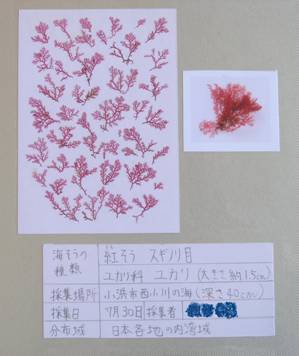 海そうの種類 紅そう スギノリ目
ユカリ科 ユカリ (大きさ約1.5cm)
採集場所 小浜市西小川の海(深さ40cm)
採集日 7月30日 採集者
分布域 日本各地の内海域